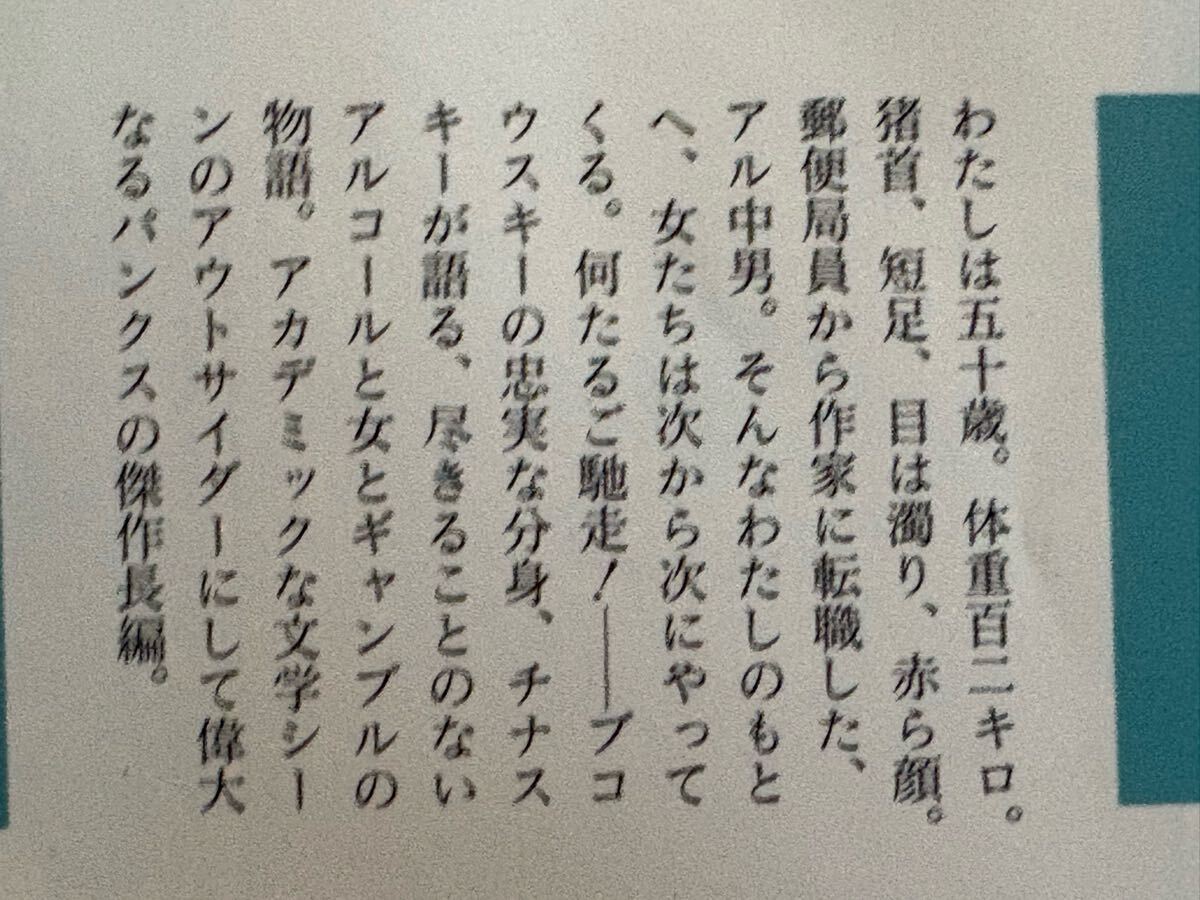 わたしは五十歳。体重百二キロ。
猪首、短足、目は濁り、赤ら顔。
郵便局員から作家に転職した、
アル中男。そんなわたしのもと
へ、女たちは次から次にやって
くる。何たるご馳走！――ブコ
ウスキーの忠実な分身、チナス
キーが語る、尽きることのない
アルコールと女とギャンブルの
物語。アカデミックな文学シー
ンのアウトサイダーにして偉大
なるパンクスの傑作長編。